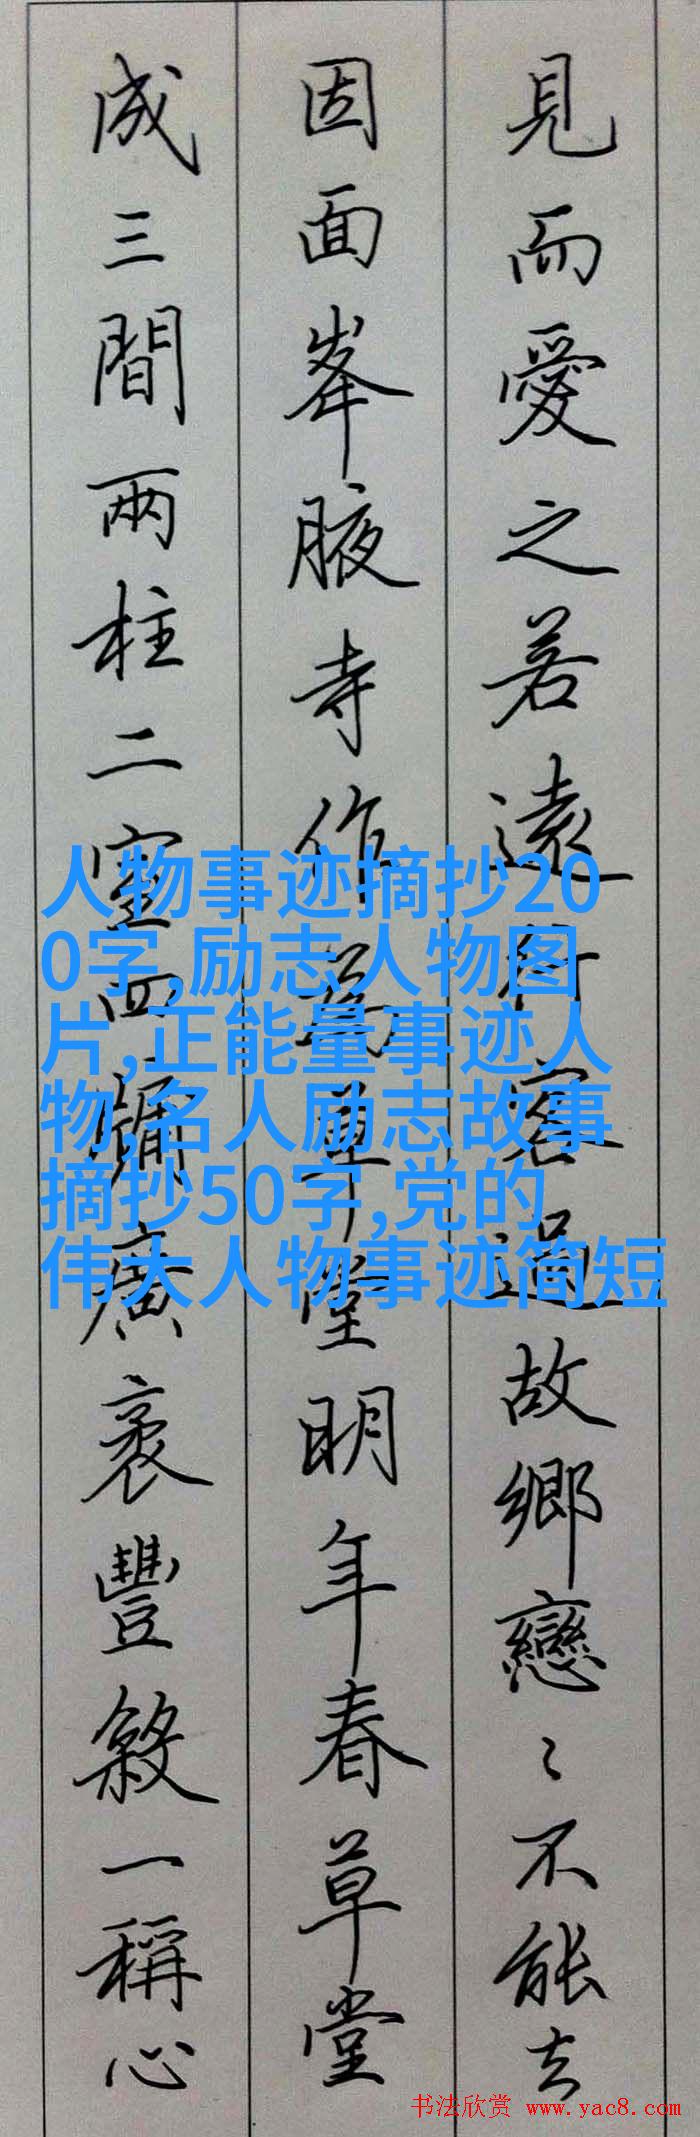 見而愛之若遠行客過故鄉戀〻不能去
因面峯腋寺作為草堂明年春草堂
成三間兩柱二室四牖廣袤豐殺一稱心
人物事迹摘抄20
0字,励志人物图
片,正能量事迹人
物,名人励志故事
摘抄50字,党的
伟大人物事迹简短
书法欣赏 www.yac8.com